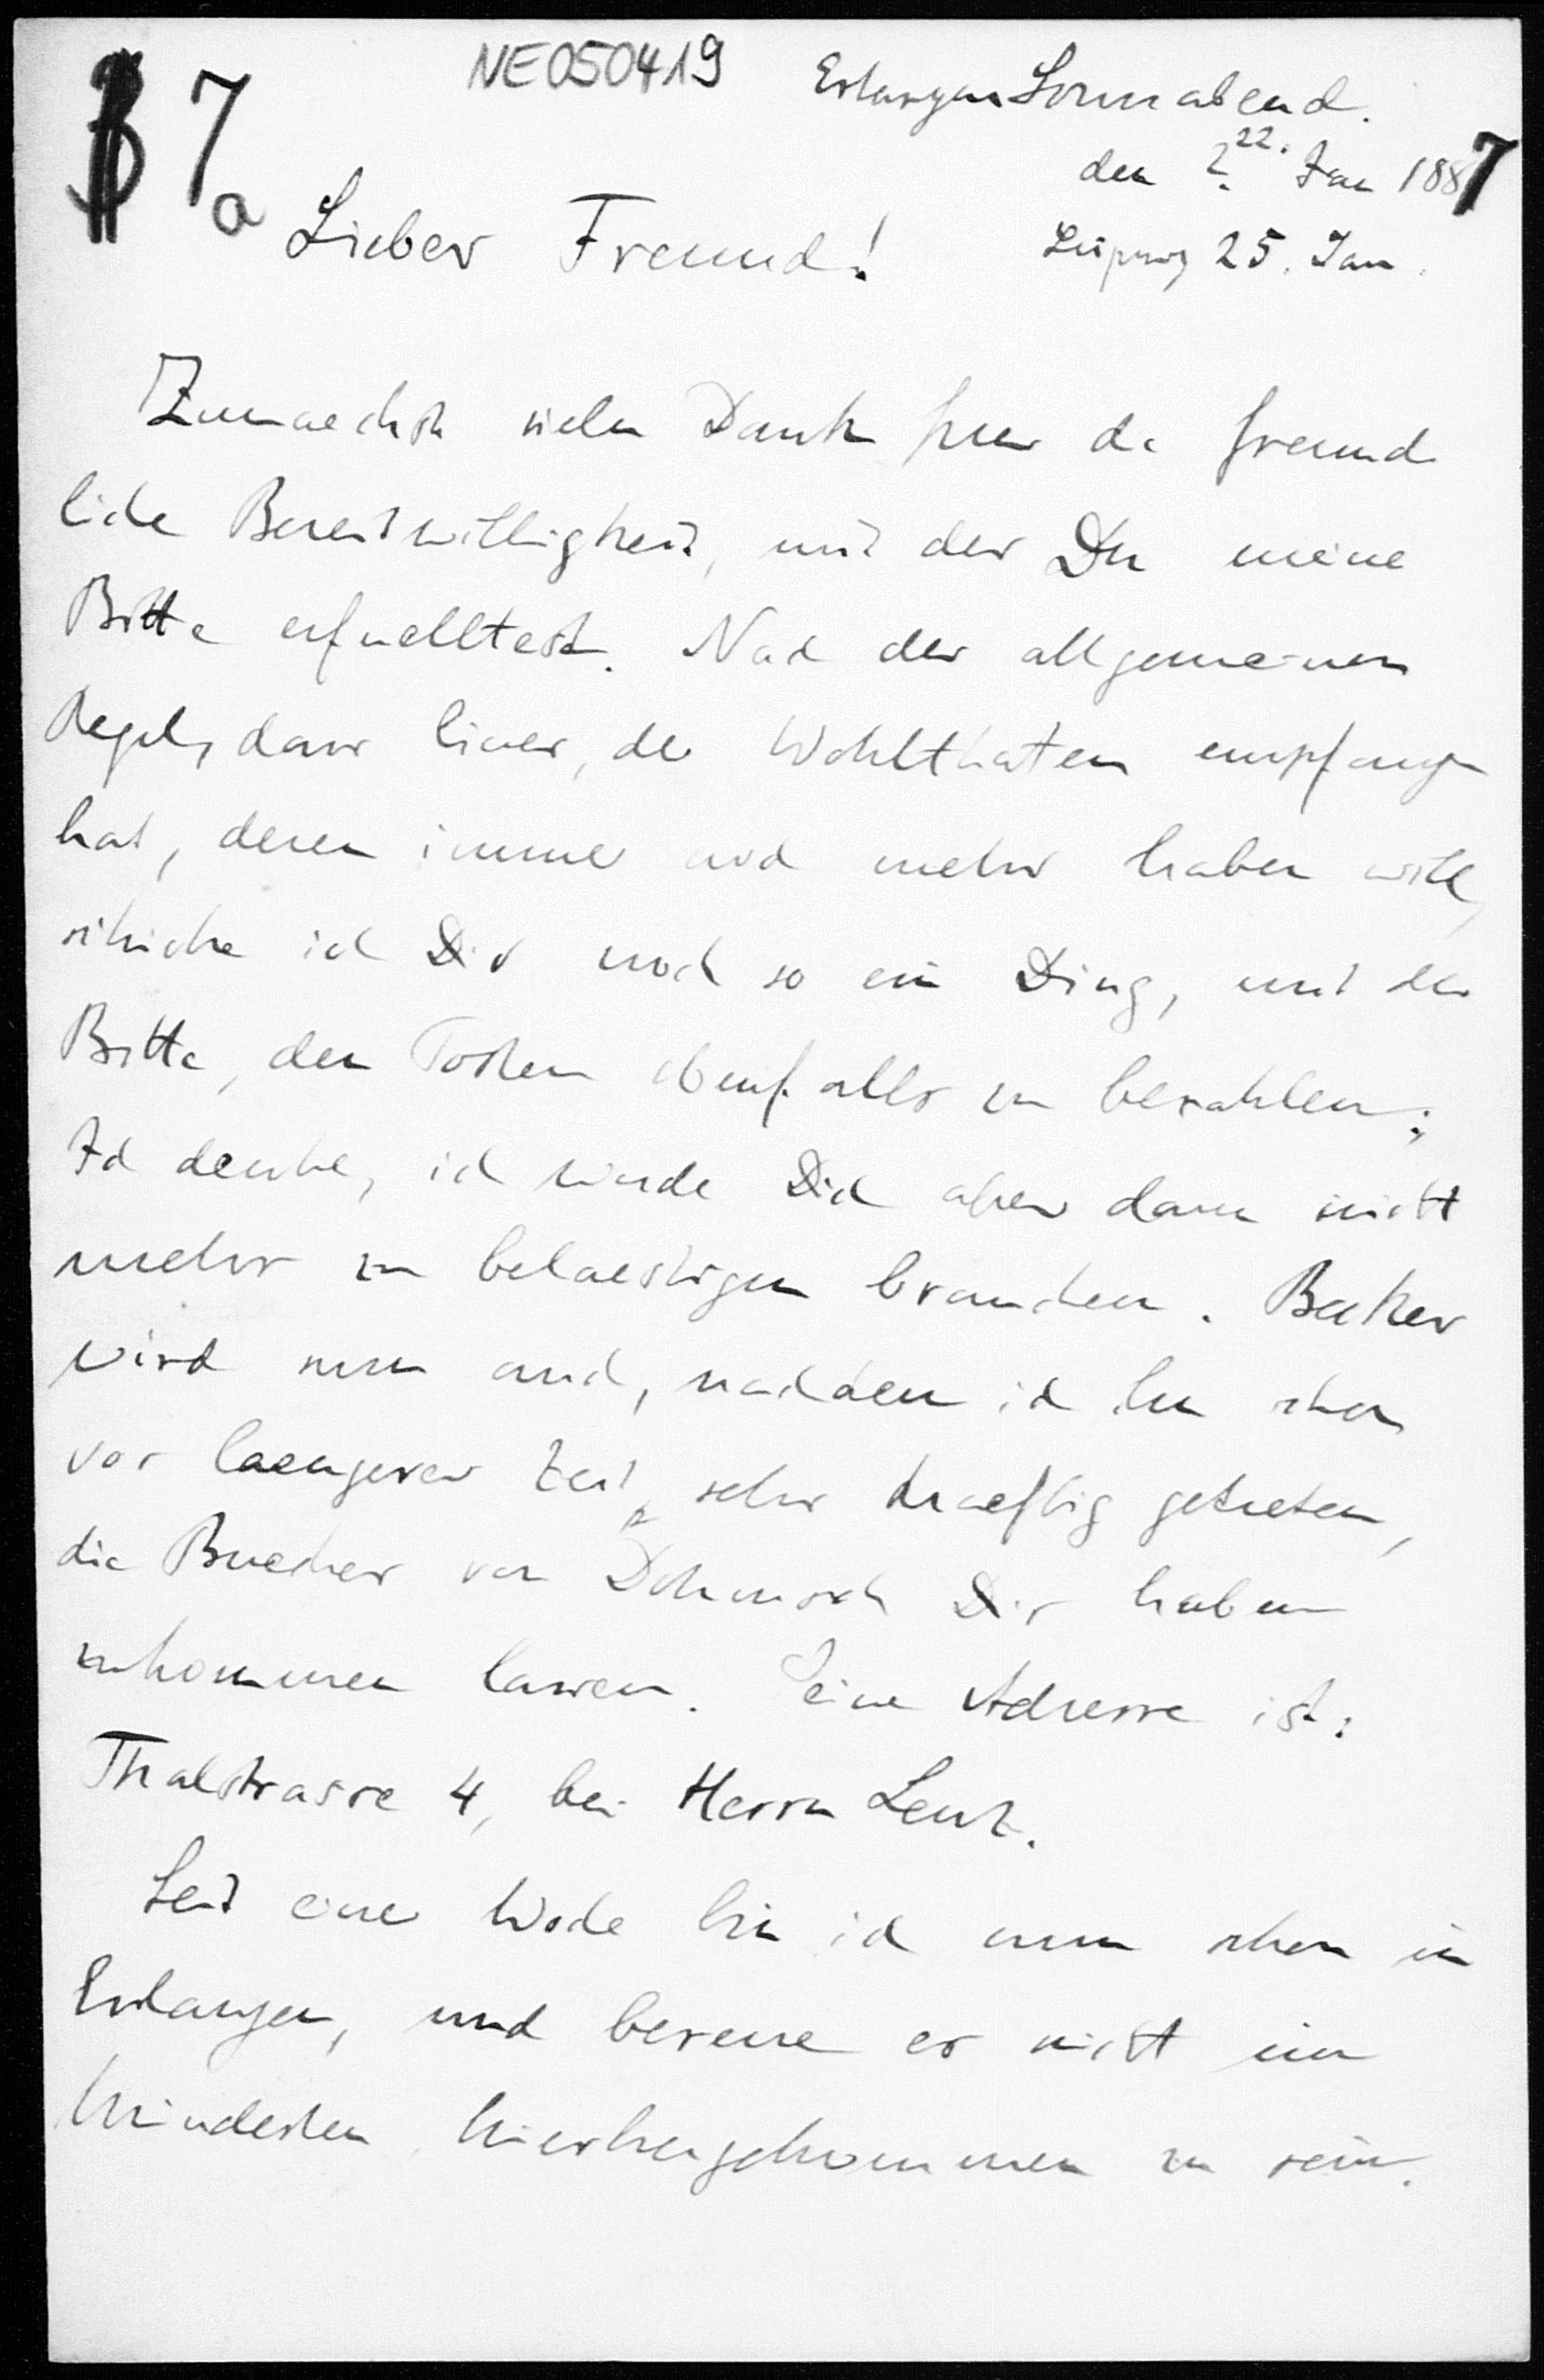 NE050419
7a
Erlangen Sonnabend.
den ?. 22. Jan 1887
Leipzig 25. Jan.
Lieber Freund!
Zunaechst vielen Dank fuer die freund
liche Bereitwilligkeit, mit der Du meine
Bitte erfuelltest. Nach der allgemeinen
Regel, dass einer, der Wohlthaten empfangen
hat, deren immer noch mehr haben will,
schicke ich Dir noch so ein Ding, mit der
Bitte, den Posten ebenfalls zu bezahlen;
Ich denke, ich werde Dich aber dann nicht
mehr zu belaestigen brauchen. Becker
wird nun auch, nachdem ich ihn schon
vor laengerer Zeit sehr kraeftig getreten,
die Buecher von Dohmsch Dir haben
zukommen lassen. Seine Adresse ist:
Thalstrasse 4, bei Herrn Lenz.
Seit einer Woche bin ich nun schon in
Erlangen, und bereue es nicht im
Mindesten hierhergekommen zu sein.